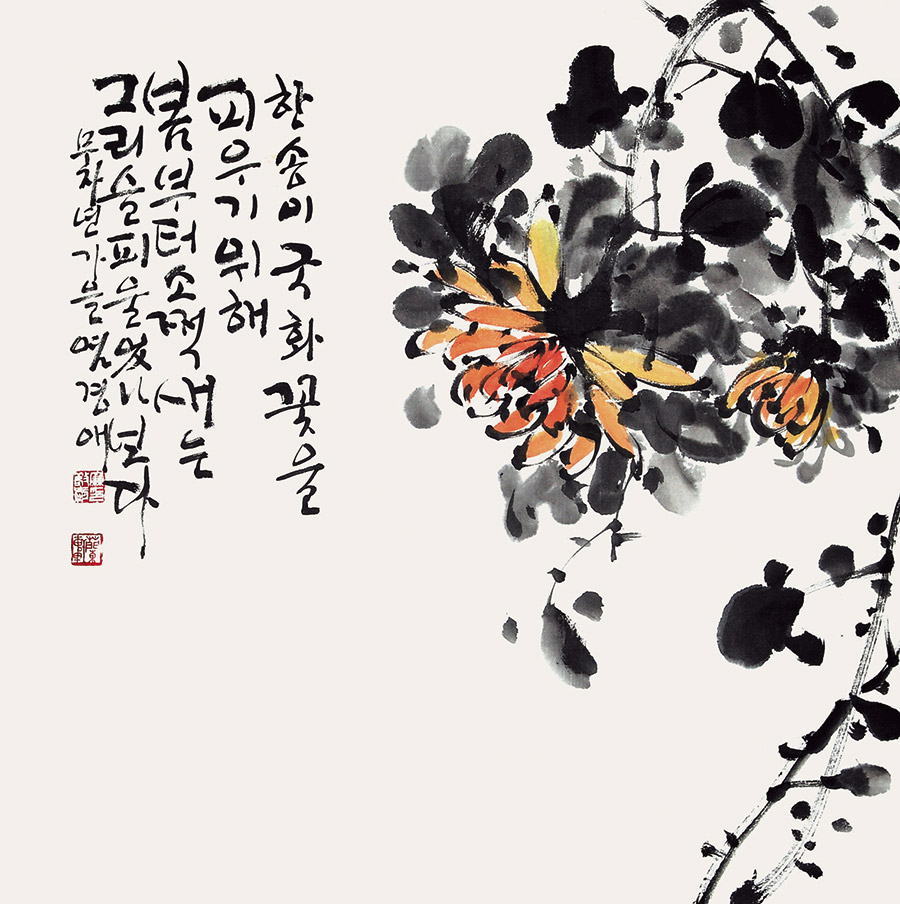 한송이국화꽃을
피우기위해
봄부터소쩍새는
그리슬피울었나보다
무자년가을염경애